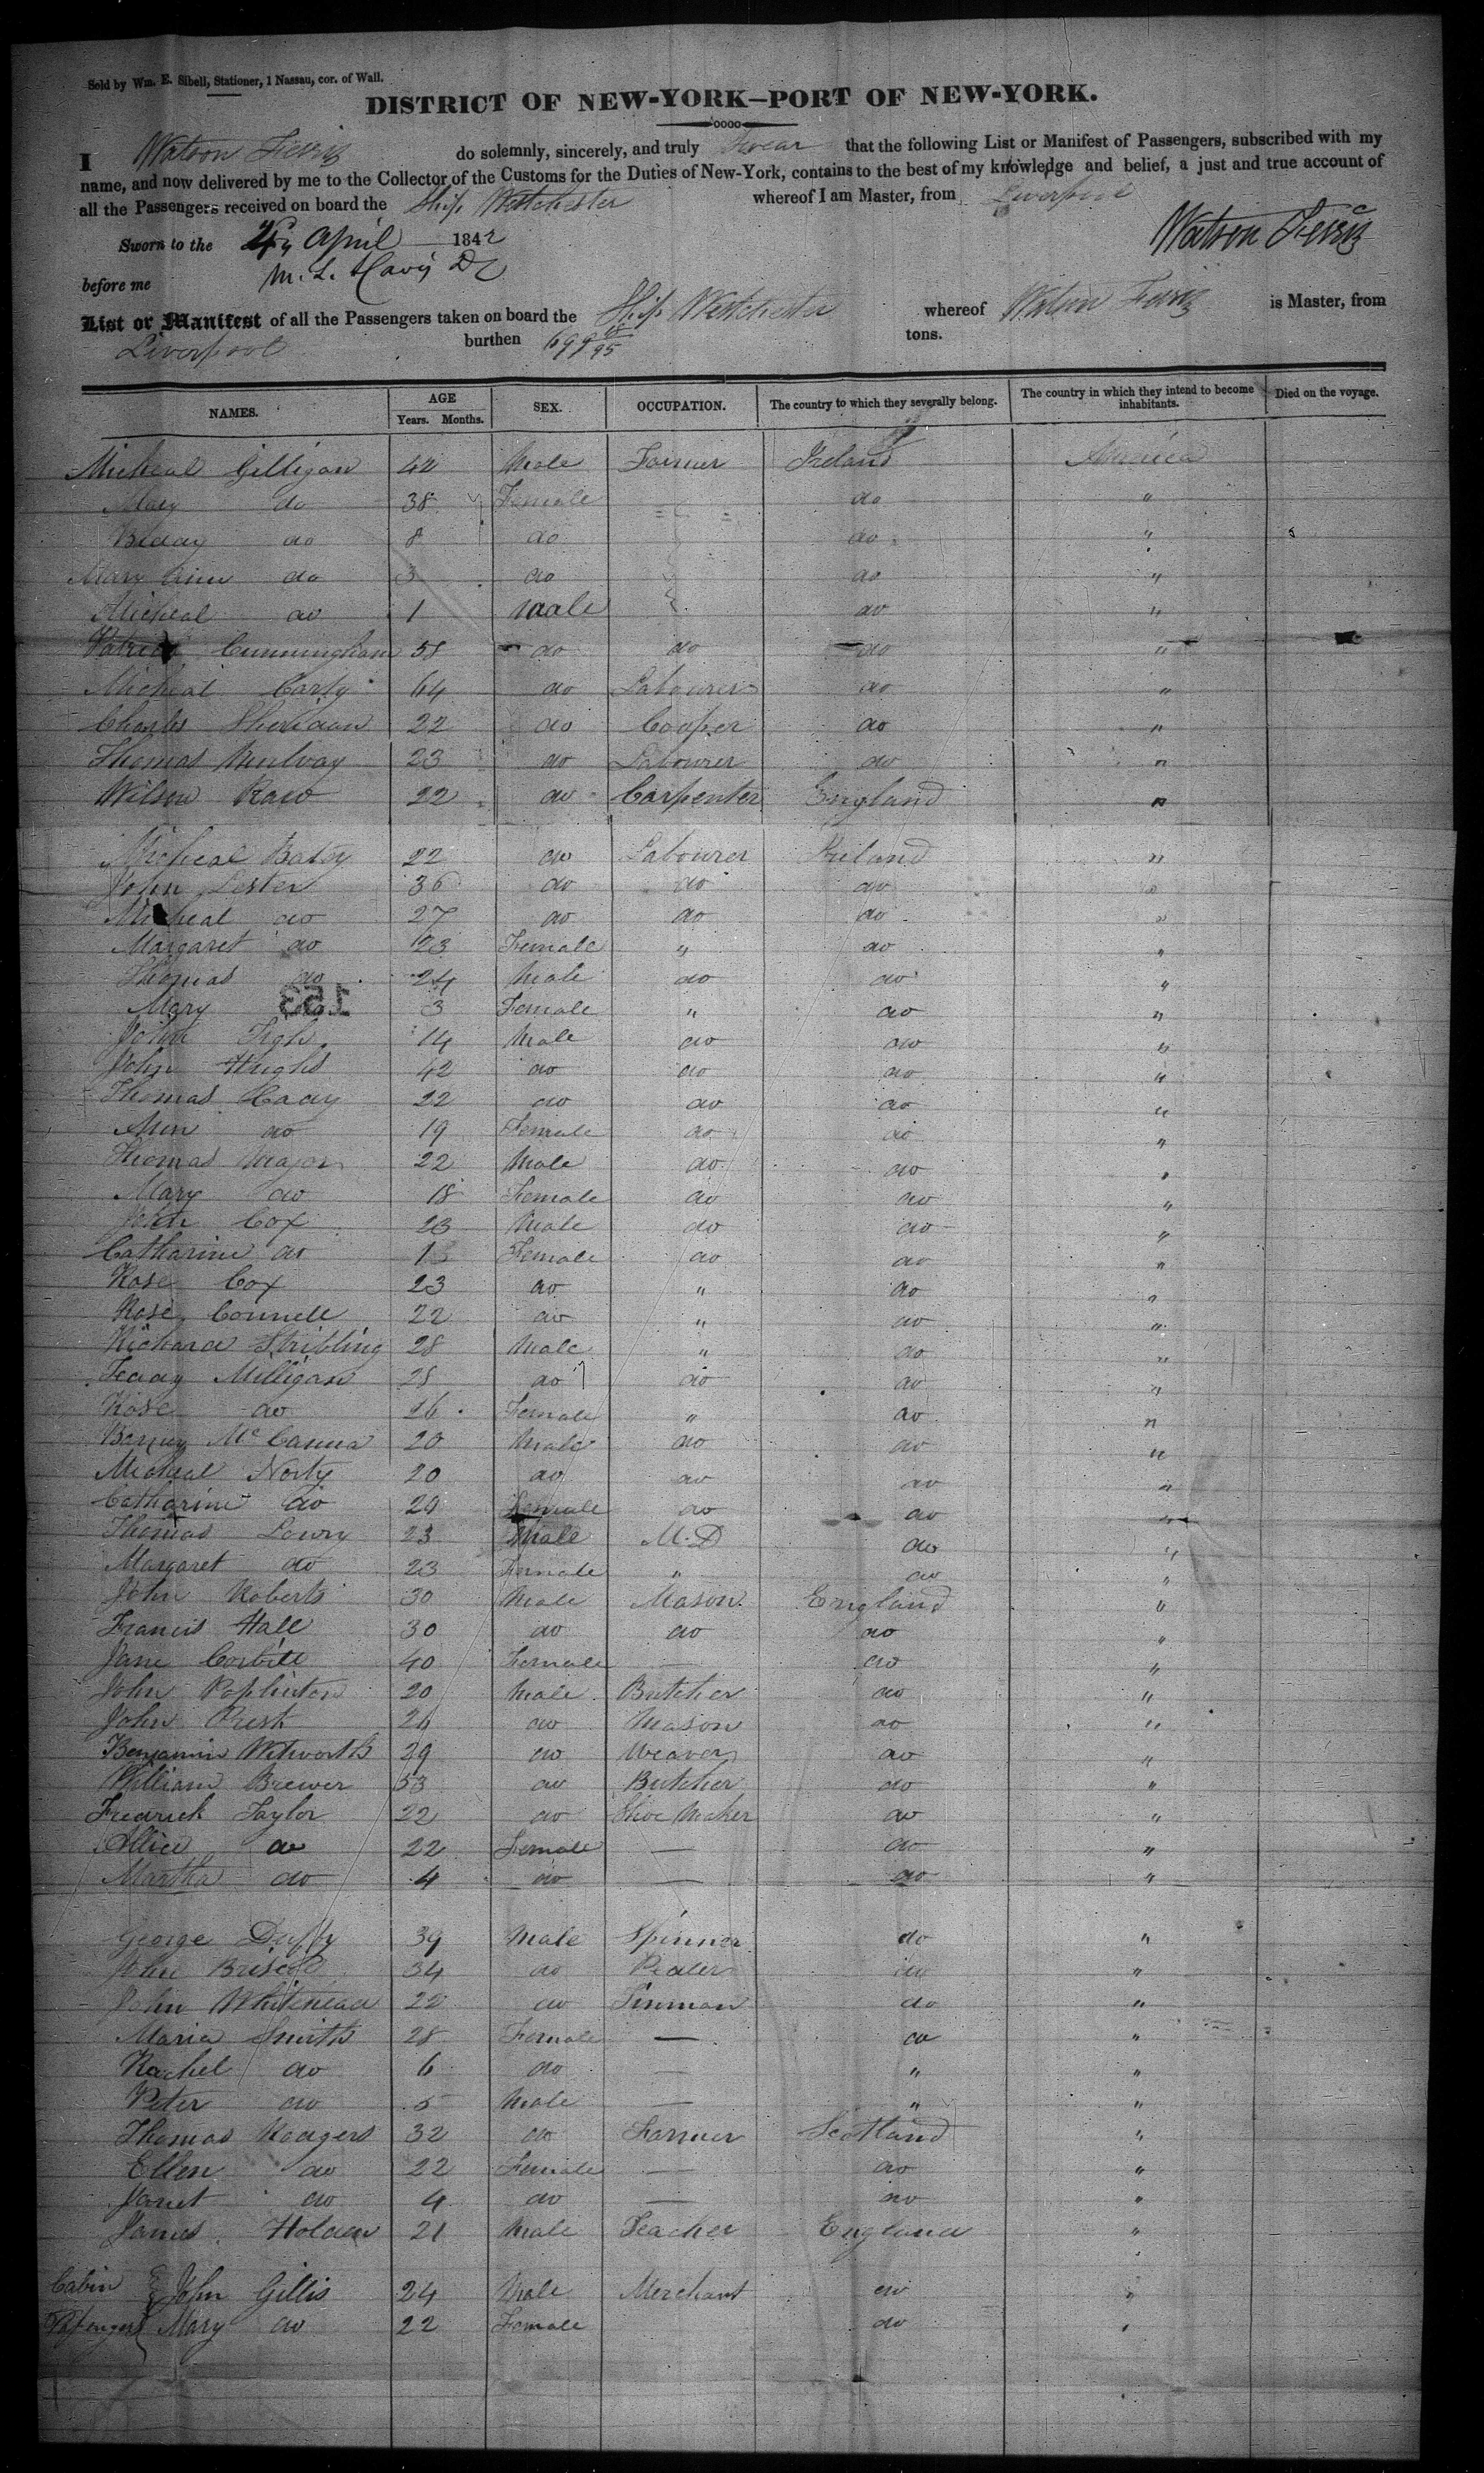 Sold by Wm. E. Sibell, Stationer, 1 Nassau, cor. of Wall.
DISTRICT OF NEW-YORK—PORT OF NEW-YORK.
I Watson Ferris do solemnly, sincerely, and truly Swear that the following List or Manifest of Passengers, subscribed with my
name, and now delivered by me to the Collector of the Customs for the Duties of New-York, contains to the best of my knowledge and belief, a just and true account of
all the Passengers received on board the Ship Westchester whereof I am Master, from Liverpool
Sworn to the April 1842 Watson Ferris
before me M. L. Davis
List or Manifest of all the Passengers taken on board the Ship Westchester whereof Watson Ferris is Master, from
Liverpool burthen 699 18/95 tons.
NAMES. AGE Years. Months. SEX. OCCUPATION. The country to which they severally belong. The country in which they intend to become inhabitants. Died on the voyage.
Micheal Gilligan 42 Male Farmer Ireland America
Mary do 38 Female do "
Biddy do 8 do do "
Mary Ann do 3 do do "
Micheal do 1 Male do "
Patrick Cunningham 58 do do do "
Micheal Carty 64 do Labourer do "
Charles Sheridan 22 do Cooper do "
Thomas Mulvay 23 do Labourer do "
Wilson Raw 22 do Carpenter England "
Micheal 22 do Labourer Ireland "
John Lester 36 do do do "
Micheal do 27 do do do "
Margaret do 23 Female " do "
Thomas do 24 Male do do "
Mary do 3 Female " do "
153
John Tigh 14 Male do do "
John Hughs 42 do do do "
Thomas Cady 22 do do do "
Ann do 19 Female do do "
Thomas Major 22 Male do do "
Mary do 18 Female do do "
John Cox 23 Male do do "
Catharine do Female do do "
Rose Cox 23 do " do "
Rose Connell 22 do " do "
Richard Stribling 28 Male " do "
Teddy Milligan 28 do do do "
Rose do 26 Female " do "
Barney McCanna 20 Male do do "
Micheal Norty 20 do do do "
Catharine do 20 Female do do "
Thomas Lowry 23 Male M.D do "
Margaret do 23 Female " do "
John Roberts 30 Male Mason England "
Francis Hall 30 do do do "
Jane Corbitt 40 Female — do "
John Poplinton 20 Male Butcher do "
John Prest 24 do Mason do "
Benjamin Witworth 29 do Weaver do "
William Brewer 53 do Butcher do "
Fredrick Taylor 22 do Shoe Maker do "
Allice do 22 Female — do "
Martha do 4 do — do "
George Duffy 39 Male Spinner do "
John Briscoe 34 do do "
John Whitehead 22 do Tinman do "
Maria Smith 28 Female — do "
Rachel do 6 do — " "
Peter do 5 Male — " "
Thomas Rodgers 32 do Farmer Scotland "
Ellen do 22 Female — do "
Janet do 4 do — do "
James Holden 21 Male Teacher England "
Cabin John Gillis 24 Male Merchant do "
Passengers Mary do 22 Female do "